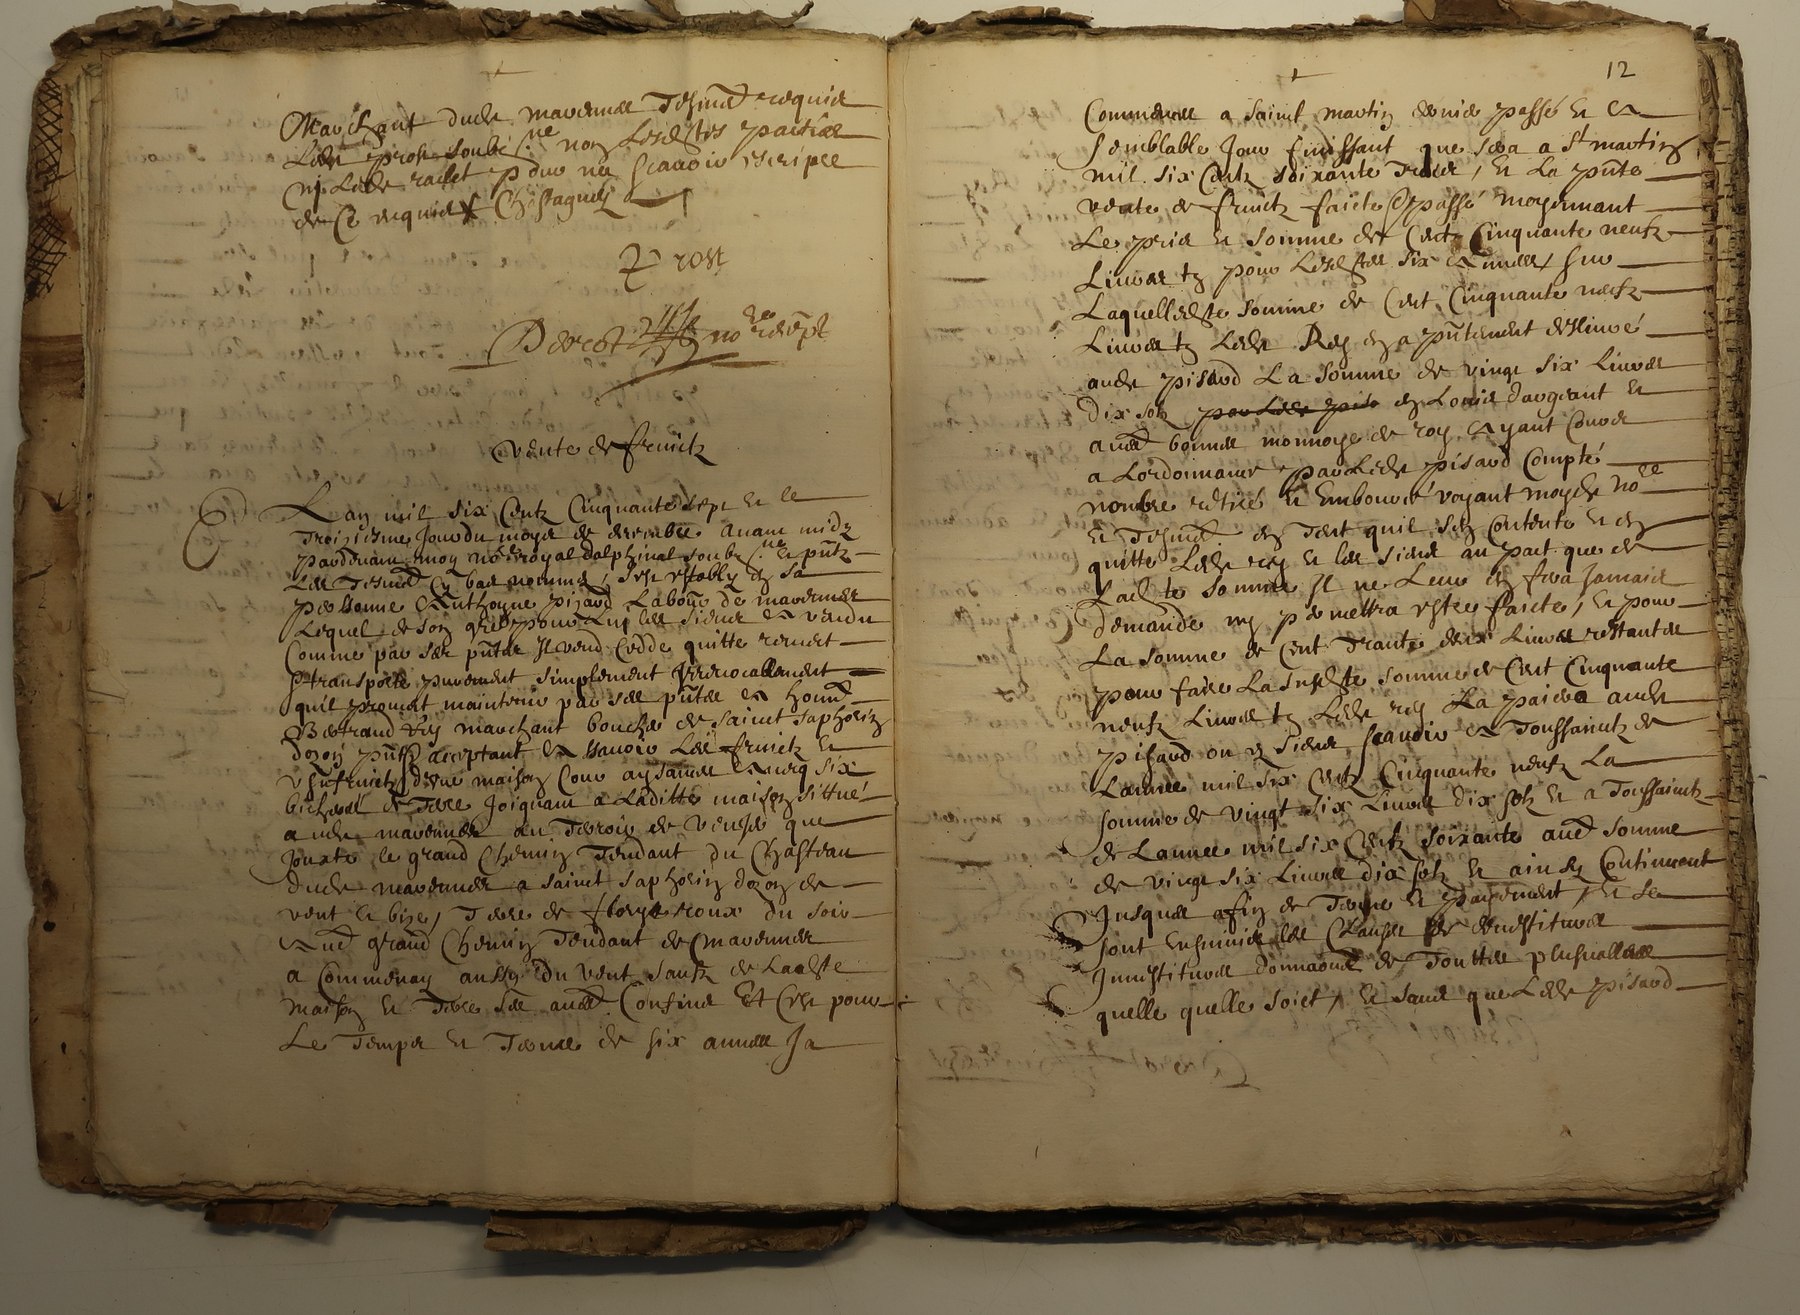 Marchant dudt mavennes Tesmoingt requis
Ledt prost soubzné non Lesdtes parties
ny Ledt rachet p duo ne scavoir escripre
de Ce requis Chastagny
Prost
Dercot nore recept
vente de fruictz
Lan mil six Centz Cinquante sept et le
Troiziesme Jour du moys de decembre avant midy
pardevant moy nore royal dalphinal soubzné et pñtz
Les Tesmoingt Cy bas nommes, sest estably en sa
personne Anthoyne pisard Labour de mavennes
Lequel de son gré pour Luy les siens A vandu
Comme par ses pñtes Il vend Cedde quitte remet
et transporte purement simplement Irrevocablement
quil promet maintenir par ses pñtes A honneste
Bertrand Rey marchant boucher de saint saphorin
dozon pñt acceptant A scavoir Les fruictz et
usufruictz dune maison Cour aysances Avecq six
bicherees de Terre Joignant a Laditte maison sittué
audt mavennes au Terroir de que
Juxte le grand Chemin Tendant du Chasteau
dudt mavennes a saint saphorin dozon de
vent et bize, Terre de roux du soir
Aud grand Chemin Tendant de mavennes
a Commenay aussy du vent sauf de Ladte
maison et Terre ses aud Confins Et Cest pour
Le Temps et Terme de six annees Ja
12
Commences a saint martin dernier passé et A
semblable Jour finissant que sera a St martin
mil six Centz soixante Trois, et La pñte
vente de fruictz faicte et passé moyennant
Le pris et somme de Cent Cinquante neufz
Livres tz pour Lesdtes six Annees, sur
Laquelledte somme de Cent Cinquante neufz
Livres tz Ledt Rey en a pñtement deslivré
audt pisard La somme de vingt six Livres
dix solz en Louis dargeant et
aud bonnes monnoye de roy ayant Cours
a Lordonnance par Ledt pisard Compté
nombre retiré et Embourcé voyant moydt nore
et Tesmoingt en Tent quil sen Contente et en
quitte Ledt rey et les siens au pact que de
Ladte somme Il ne Leur en fera Jamais
demande ny permettra estre faicte, et pour
La somme de Cent Trante deux Livres restantes
pour faire La susdte somme de Cent Cinquante
neufz Livres tz Ledt rey La paiera audt
pisard ou es siens, scavoir A Toussaintz de
Lannee mil six Centz Cinquante neufz La
somme de vingt six Livres dix solz et a Toussaintz
de Lannee mil six Centz soixante aud somme
de vingt six Livres dix solz et ainsy Continuant
Jusques afin de Terme et payement, et se
sont ensuivies les Clauses de devestitures
Investitures donnaons de Touttes plusvallees
quelle quelle soiet, et sans que Ledt pisard